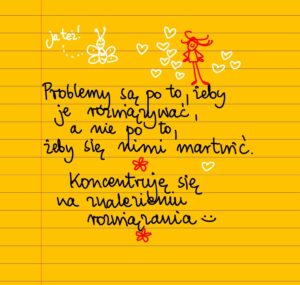 ja też!
Problemy są po to, żeby
je rozwiązywać,
a nie po to,
żeby się nimi martwić.
Koncentruję się
na znalezieniu
rozwiązania